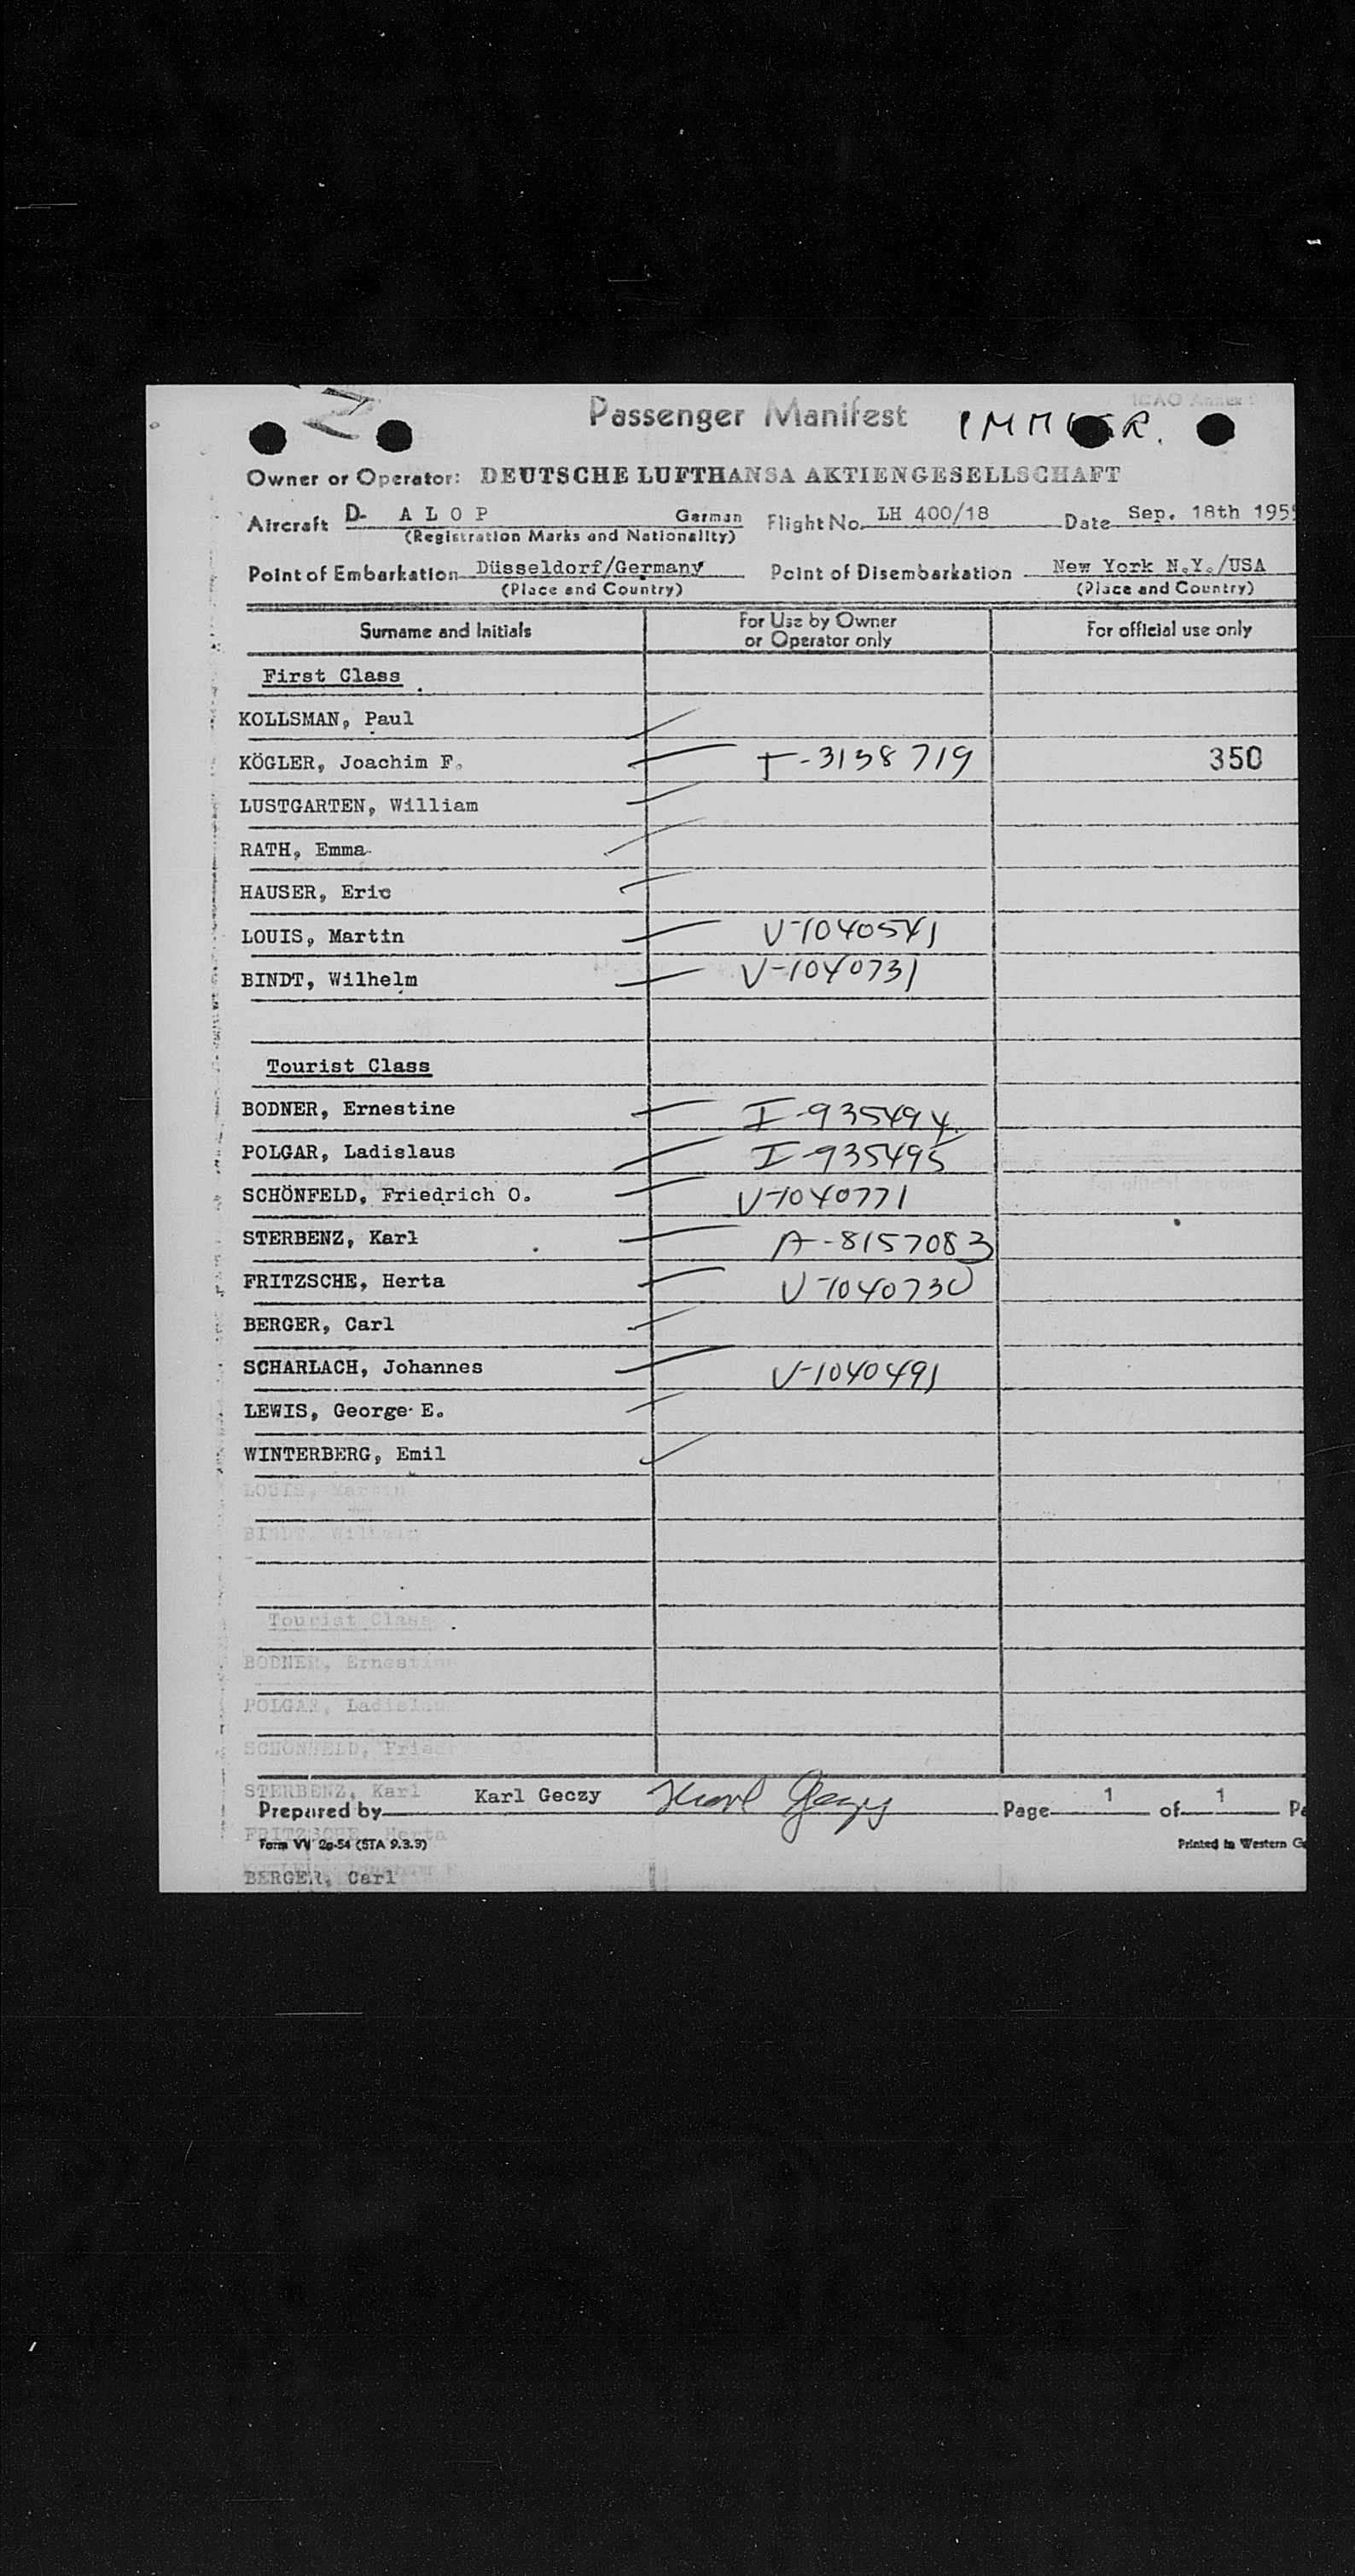 ICAO Annex 9
Passenger Manifest
Owner or Operator: DEUTSCHE LUFTHANSA AKTIENGESELLSCHAFT
Aircraft D- A L O P German Flight No. LH 400/18 Date Sep. 18th 195
(Registration Marks and Nationality)
Point of Embarkation Düsseldorf/Germany Point of Disembarkation New York N.Y./USA
(Place and Country) (Place and Country)
Surname and Initials For Use by Owner or Operator only For official use only
First Class
KOLLSMAN, Paul
KÖGLER, Joachim F. T-3138719 350
LUSTGARTEN, William
RATH, Emma
HAUSER, Eric
LOUIS, Martin V-1040541
BINDT, Wilhelm V-1040731
Tourist Class
BODNER, Ernestine I-935494
POLGAR, Ladislaus I-935495
SCHÖNFELD, Friedrich O. V-1040771
STERBENZ, Karl A-8157083
FRITZSCHE, Herta V-1040730
BERGER, Carl
SCHARLACH, Johannes V-1040491
LEWIS, George E.
WINTERBERG, Emil
LOUIS, Martin
BINDT, Wilhelm
Tourist Class
BODNER, Ernestine
POLGAR, Ladislau
SCHÖNFELD, Fried O.
STERBENZ, Karl
Prepared by Karl Geczy Karl Geczy Page 1 of 1 Pa
FRITZSCHE, Herta
Form VV 2g-54 (STA 9.3.3) Printed in Western G
BERGER, Carl